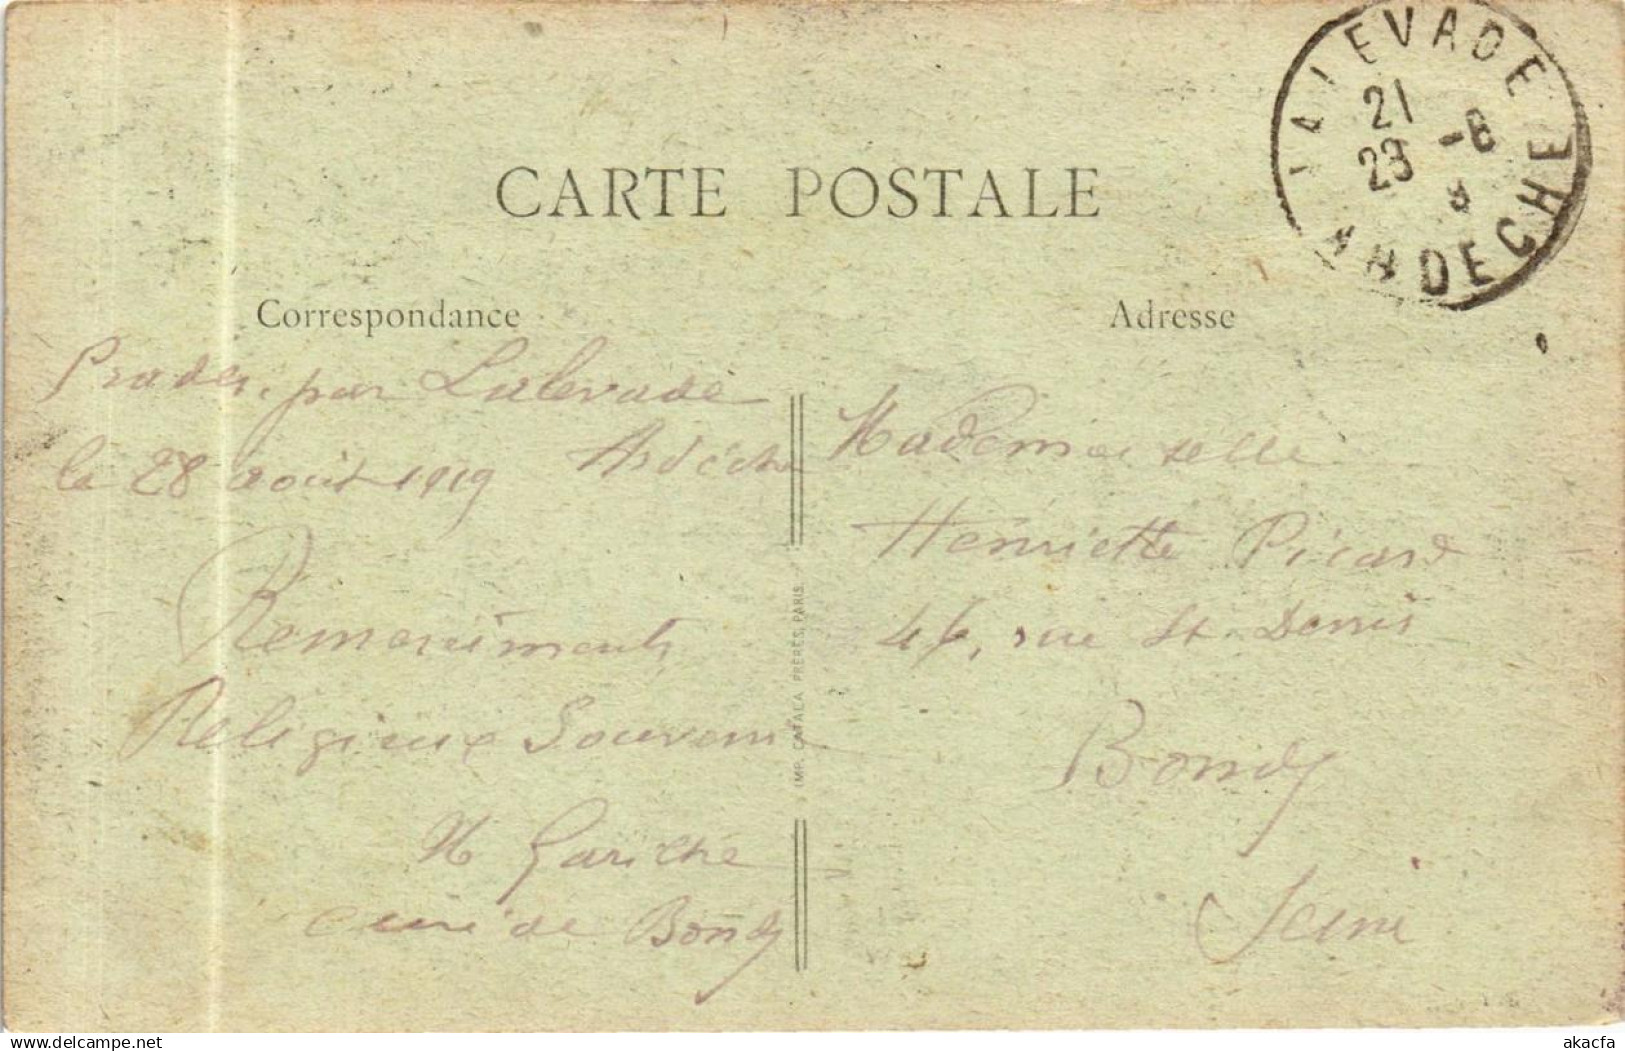 CARTE POSTALE
LALEVADE
21
23 -8
ARDECHE
Correspondance
Adresse
Prades, par Lalevade
Ardèche
le 28 août 1919
Remerciments
Religieux Souvenir
curé de Bondy
IMP. CATALA FRÈRES, PARIS
Mademoiselle
Henriette Picard
46, rue St. Denis
Bondy
Seine
akacfa